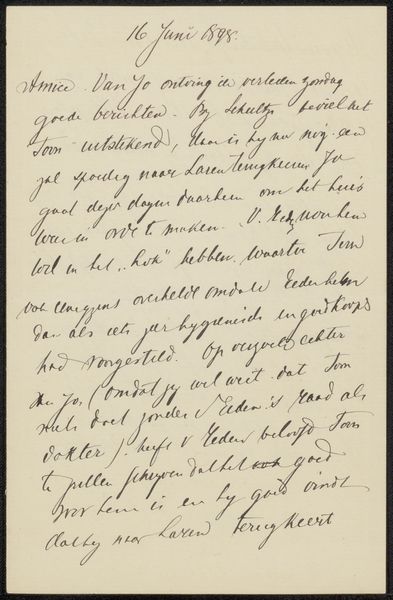 16 Juni 1898.
Amice. Van Jo ontving ik verleden zondag
goede berichten. By Schultz beviel het
Toon uitstekend, daar is hy nu nog en
zal spoedig naar Laren terugkeeren. Jo
gaat dezer dagen daarheen om het huis
weer in orde te maken. V. Eeden wou hem
wel in het "hok" hebben, waartoe Toon
overhelde omdat v Eeden hem
dan als iets zeer hygienisch en goedkoops
had voorgesteld. Op verzoek echter
van Jo, (omdat zy wel weet dat Toon
niets doet zonder v Eeden's raad als
dokter) heeft v Eeden beloofd Toon
te zullen schryven dat het goed
voor hem is en hy goed vindt
dat hy naar Laren terugkeert